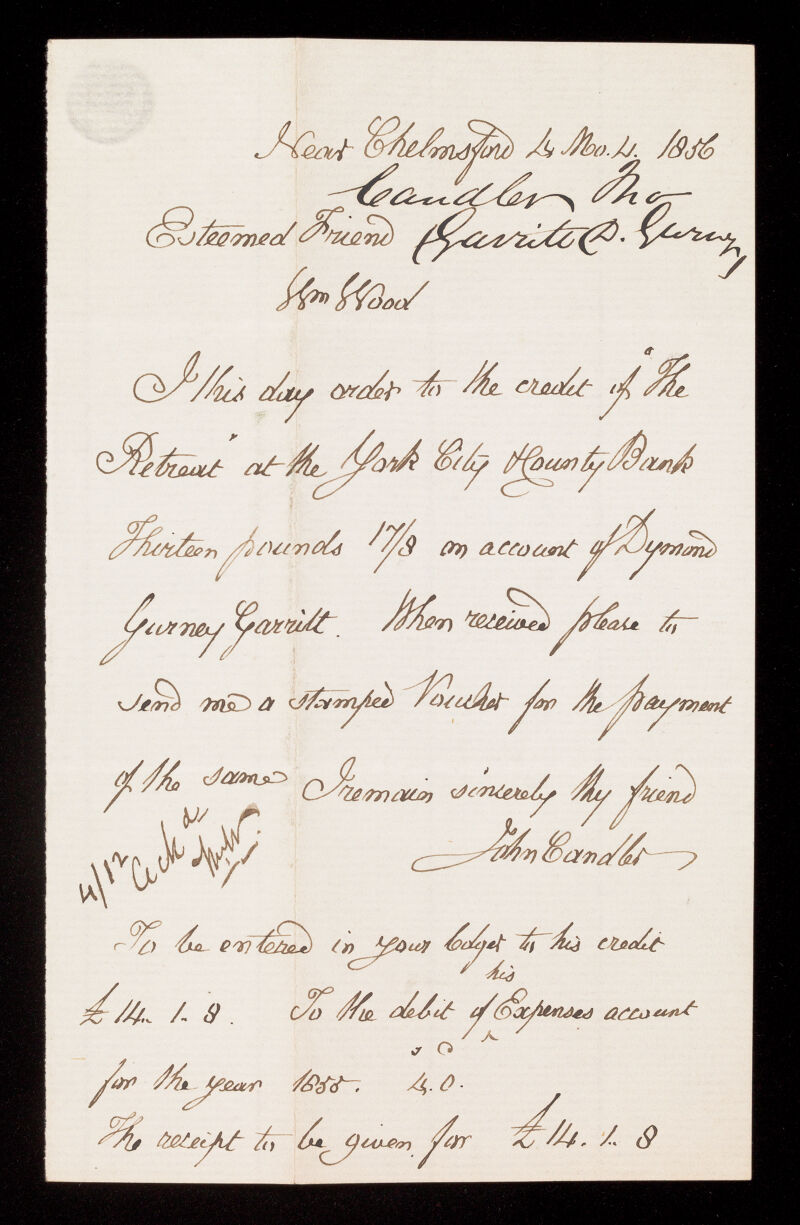 Near Chelmsford 4 Mo. 4. 1856
Candler Jno
Esteemed Friend Garritt D. Gurney
Wm Wood
I this day order to the credit of "The
Retreat" at the York City & County Bank
Thirteen pounds 17/8 on account of Dymond
Gurney Garritt. When received please to
send me a stamped Voucher for the payment
of the same I remain sincerely thy friend
John Candler
4/12 Ack d
To be entered in your ledger to his credit
£14. 1. 8. To the debit of his Expenses account
for the year 1855. 4s. 0d.
The receipt to be given for £14. 1. 8